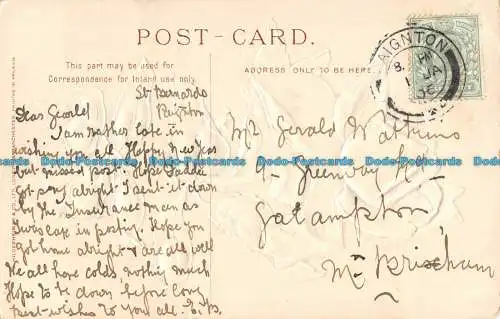 POST-CARD.
This part may be used for
Correspondence for Inland use only.
ADDRESS ONLY TO BE
PAIGNTON
JA
St Bernards
Paignton
Dear Gerald
I am rather late in
wishing you all Happy New Year
but missed post. Hope Daddie
got away alright I sent it down
by the Insurance man as
Swiss case in posting. Hope you
got home alright & are all well
We all have colds, nothing much
Hope to be down before long
best wishes to you all. E.B.
Mr Gerald Watkins
9 Greenway Rd
Galampton
Nr Brixham
Dodo-Postcards.com